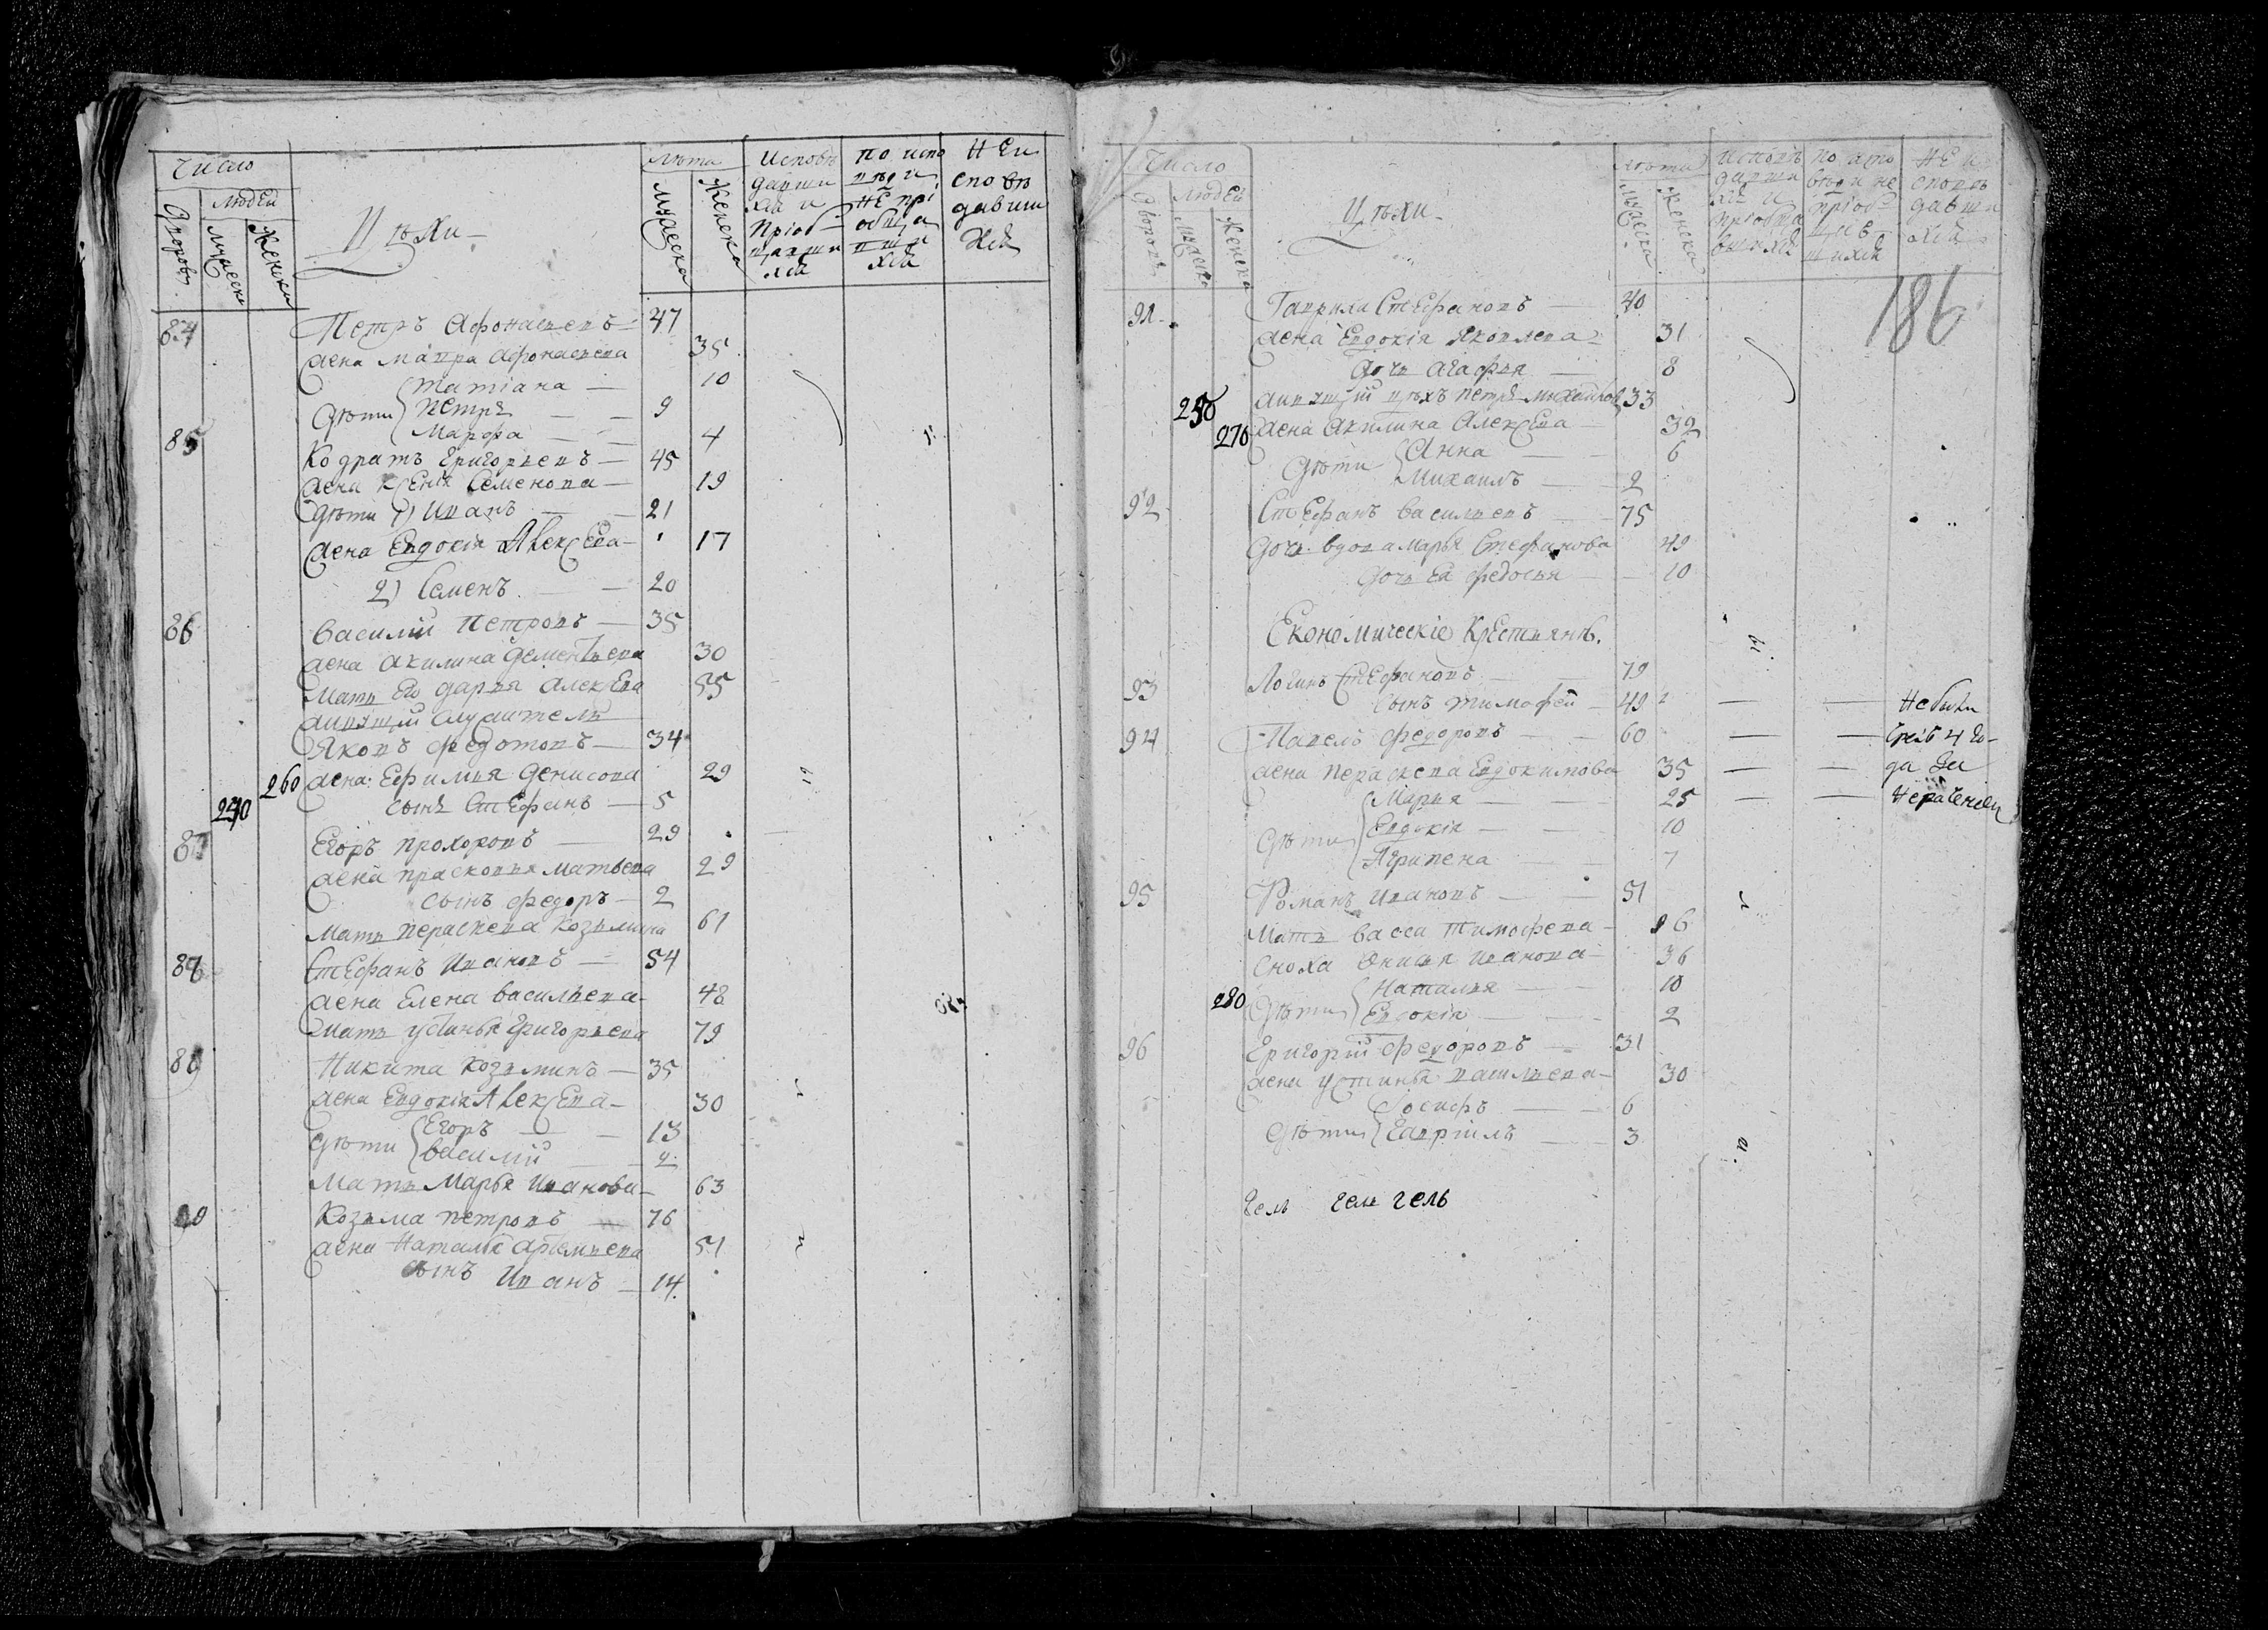 Число
людей
Дворовъ
мужеска
женска
Цѣхи
лѣта
мужеска
женска
исповѣ
давши
хся и
пріоб
щавши
хся
по испо
вѣди
не прі
обща
вши
хся
Не и
спові
давши
хся
84 Петръ Афонасьевъ 47
жена Мавра Афонасьева 35
Татіана 10
дѣти Петръ 9
Марфа 4
85 Кодратъ Григорьевъ 45
жена Ксенія Семенова 19
дѣти 1) Иванъ 21
жена Евдокія Алексѣева 17
2) Семенъ 20
86 Василій Петровъ 35
жена Акилина Дементьева 30
мать его Дарья Алексѣева 55
Яковъ Федотовъ 34
260 жена Ефимья Денисова 29
240 сынъ Стефанъ 5
87 Егоръ Прохоровъ 29
жена Прасковья Матвева 29
сынъ Федоръ 2
мать Пераскева Козьмина 61
88 Стефанъ Ивановъ 54
жена Елена Васильева 48
мать Устинья Григорьева 79
89 Никита Козьминъ 35
жена Евдокія Алексѣева 30
Егоръ 13
дѣти Василій 4
мать Марья Иванова 63
90 Козьма Петровъ 76
жена Наталья Артемьева 51
сынъ Иванъ 14
Число
людей
дворовъ
мужеска
женска
Цѣхи
лѣта
мужеска
женска
исповѣ
давши
хся и
пріобща
вшихся
по испо
вѣди не
пріоб
щив
шихся
Не и
сповѣ
давши
хся
186
91 Гаврила Стефановъ 40
жена Евдокія Яковлева 31
дочь Агафья 8
250 живущій цѣхъ Петръ Михайловъ 33
270 жена Акилина Алексѣева 32
Анна 6
дѣти Михаилъ 2
92 Стефанъ Васильевъ 75
дочь вдова Марья Стефанова 49
дочь ея Федосья 10
Економическіе Крестьянѣ.
93 Логинъ Стефановъ 79
сынъ Тимофей 49 — — Небыли
94 Павелъ Федоровъ 60 — чрезъ 4 го-
жена Пераскева Евдокимова 35 — — да за
Марья 25 — — Нерачением
Евдокія 10
дѣти
Агрипена 7
95 Романъ Ивановъ 51
мать Васса Тимофева 86
сноха Анисья Иванова 36
Наталья 10
280 дѣти Евдокія 2
96 Григорій Федоровъ 31
жена Устинья Васильева 30
Іосифъ 6
дѣти Гавріилъ 3
чель чель чель